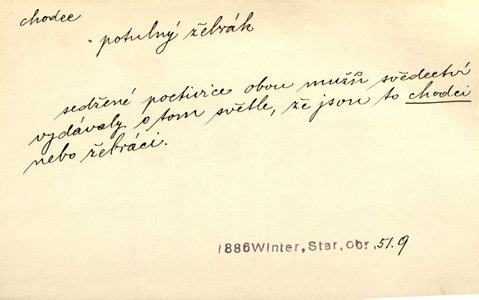 chodec
potulný žebrák
sedřené poctivice obou mužů svědectví
vydávaly o tom světle, že jsou to chodci
nebo žebráci.
1886Winter,Star.obr.51.9